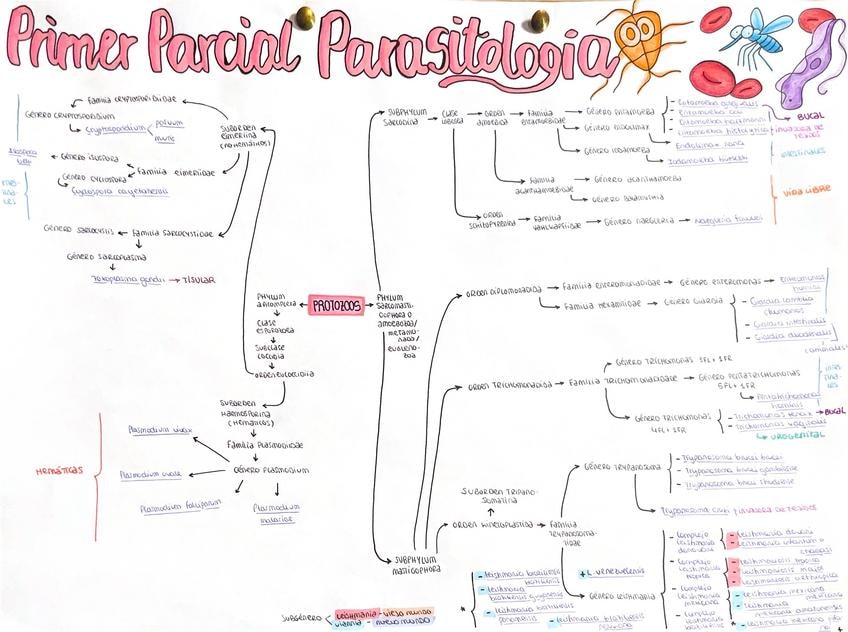 Primer Parcial Parasitología
Familia Cryptosporidiidae
Género Cryptosporidium
Cryptosporidium
parvum
muris
Suborden
Eimeriina
(no hemáticos)
Género Isospora
Isospora
belli
Familia Eimeriidae
Género Cyclospora
Cyclospora cayetanensis
Género Sarcocystis
Familia Sarcocystidae
Género Sarcoplasma
Toxoplasma gondii
TISULAR
PROTOZOOS
Phylum
Apicomplexa
Clase
Esporozoea
Subclase
Coccidia
Orden Eucoccidiida
Suborden
Haemosporina
(Hemáticos)
Familia Plasmodiidae
Género Plasmodium
Plasmodium vivax
Plasmodium ovale
Plasmodium falciparum
Plasmodium
malariae
HEMÁTICAS
Phylum
Sarcomasti-
gophora o
amoebozoa/
metamo-
nada/
eugleno-
zoa
Subphylum
Sarcodina
Clase
Lobosea
Orden
Amoebida
Familia
Entamoebidae
Género Entamoeba
- Entamoeba gingivalis
- Entamoeba coli
- Entamoeba hartmanni
- Entamoeba histolytica
BUCAL
INVASORA DE
TEJIDOS
Género Endolimax
Endolimax nana
Género Iodamoeba
Iodamoeba butschlii
INTESTINALES
Familia
Acanthamoebidae
Género Acanthamoeba
Género Balamuthia
VIDA LIBRE
Orden
Schizopyrenida
Familia
Vahlkampfiidae
Género Naegleria
Naegleria fowleri
Orden Diplomonadida
Familia Enteromonadidae
Género Enteromonas
Enteromonas
hominis
Familia Hexamitidae
Género Giardia
- Giardia lamblia
- Giardia intestinalis
- Giardia duodenalis
Orden Trichomonadida
Familia Trichomonadidae
Género Trichomonas 3FL + 1FR
Género Pentatrichomonas
5FL + 1FR
Pentatrichomonas
hominis
Género Trichomonas
4FL + 1FR
- Trichomonas tenax
BUCAL
- Trichomonas vaginalis
UROGENITAL
Subphylum
Mastigophora
Suborden Tripano-
somatina
Orden Kinetoplastida
Familia
Trypanosoma-
tidae
Género Trypanosoma
- Trypanosoma brucei brucei
- Trypanosoma brucei gambiense
- Trypanosoma brucei rhodesiense
Trypanosoma cruzi
INVASORA DE TEJIDOS
Género Leishmania
+ L. venezuelensis
- Complejo
Leishmania
donovani
- Leishmania donovani
- Leishmania infantum o
chagasi
- Complejo
Leishmania
tropica
- Leishmania tropica
- Leishmania major
- Leishmania aethiopica
- Complejo
Leishmania
mexicana
- Leishmania mexicana
mexicana
- Leishmania
mexicana amazonensis
- Complejo
Leishmania
braziliensis
- Leishmania braziliensis
braziliensis
- Leishmania
braziliensis guyanensis
- Leishmania braziliensis
panamensis
- Leishmania braziliensis
peruviana
Subgénero
Leishmania - viejo mundo
Viannia - nuevo mundo